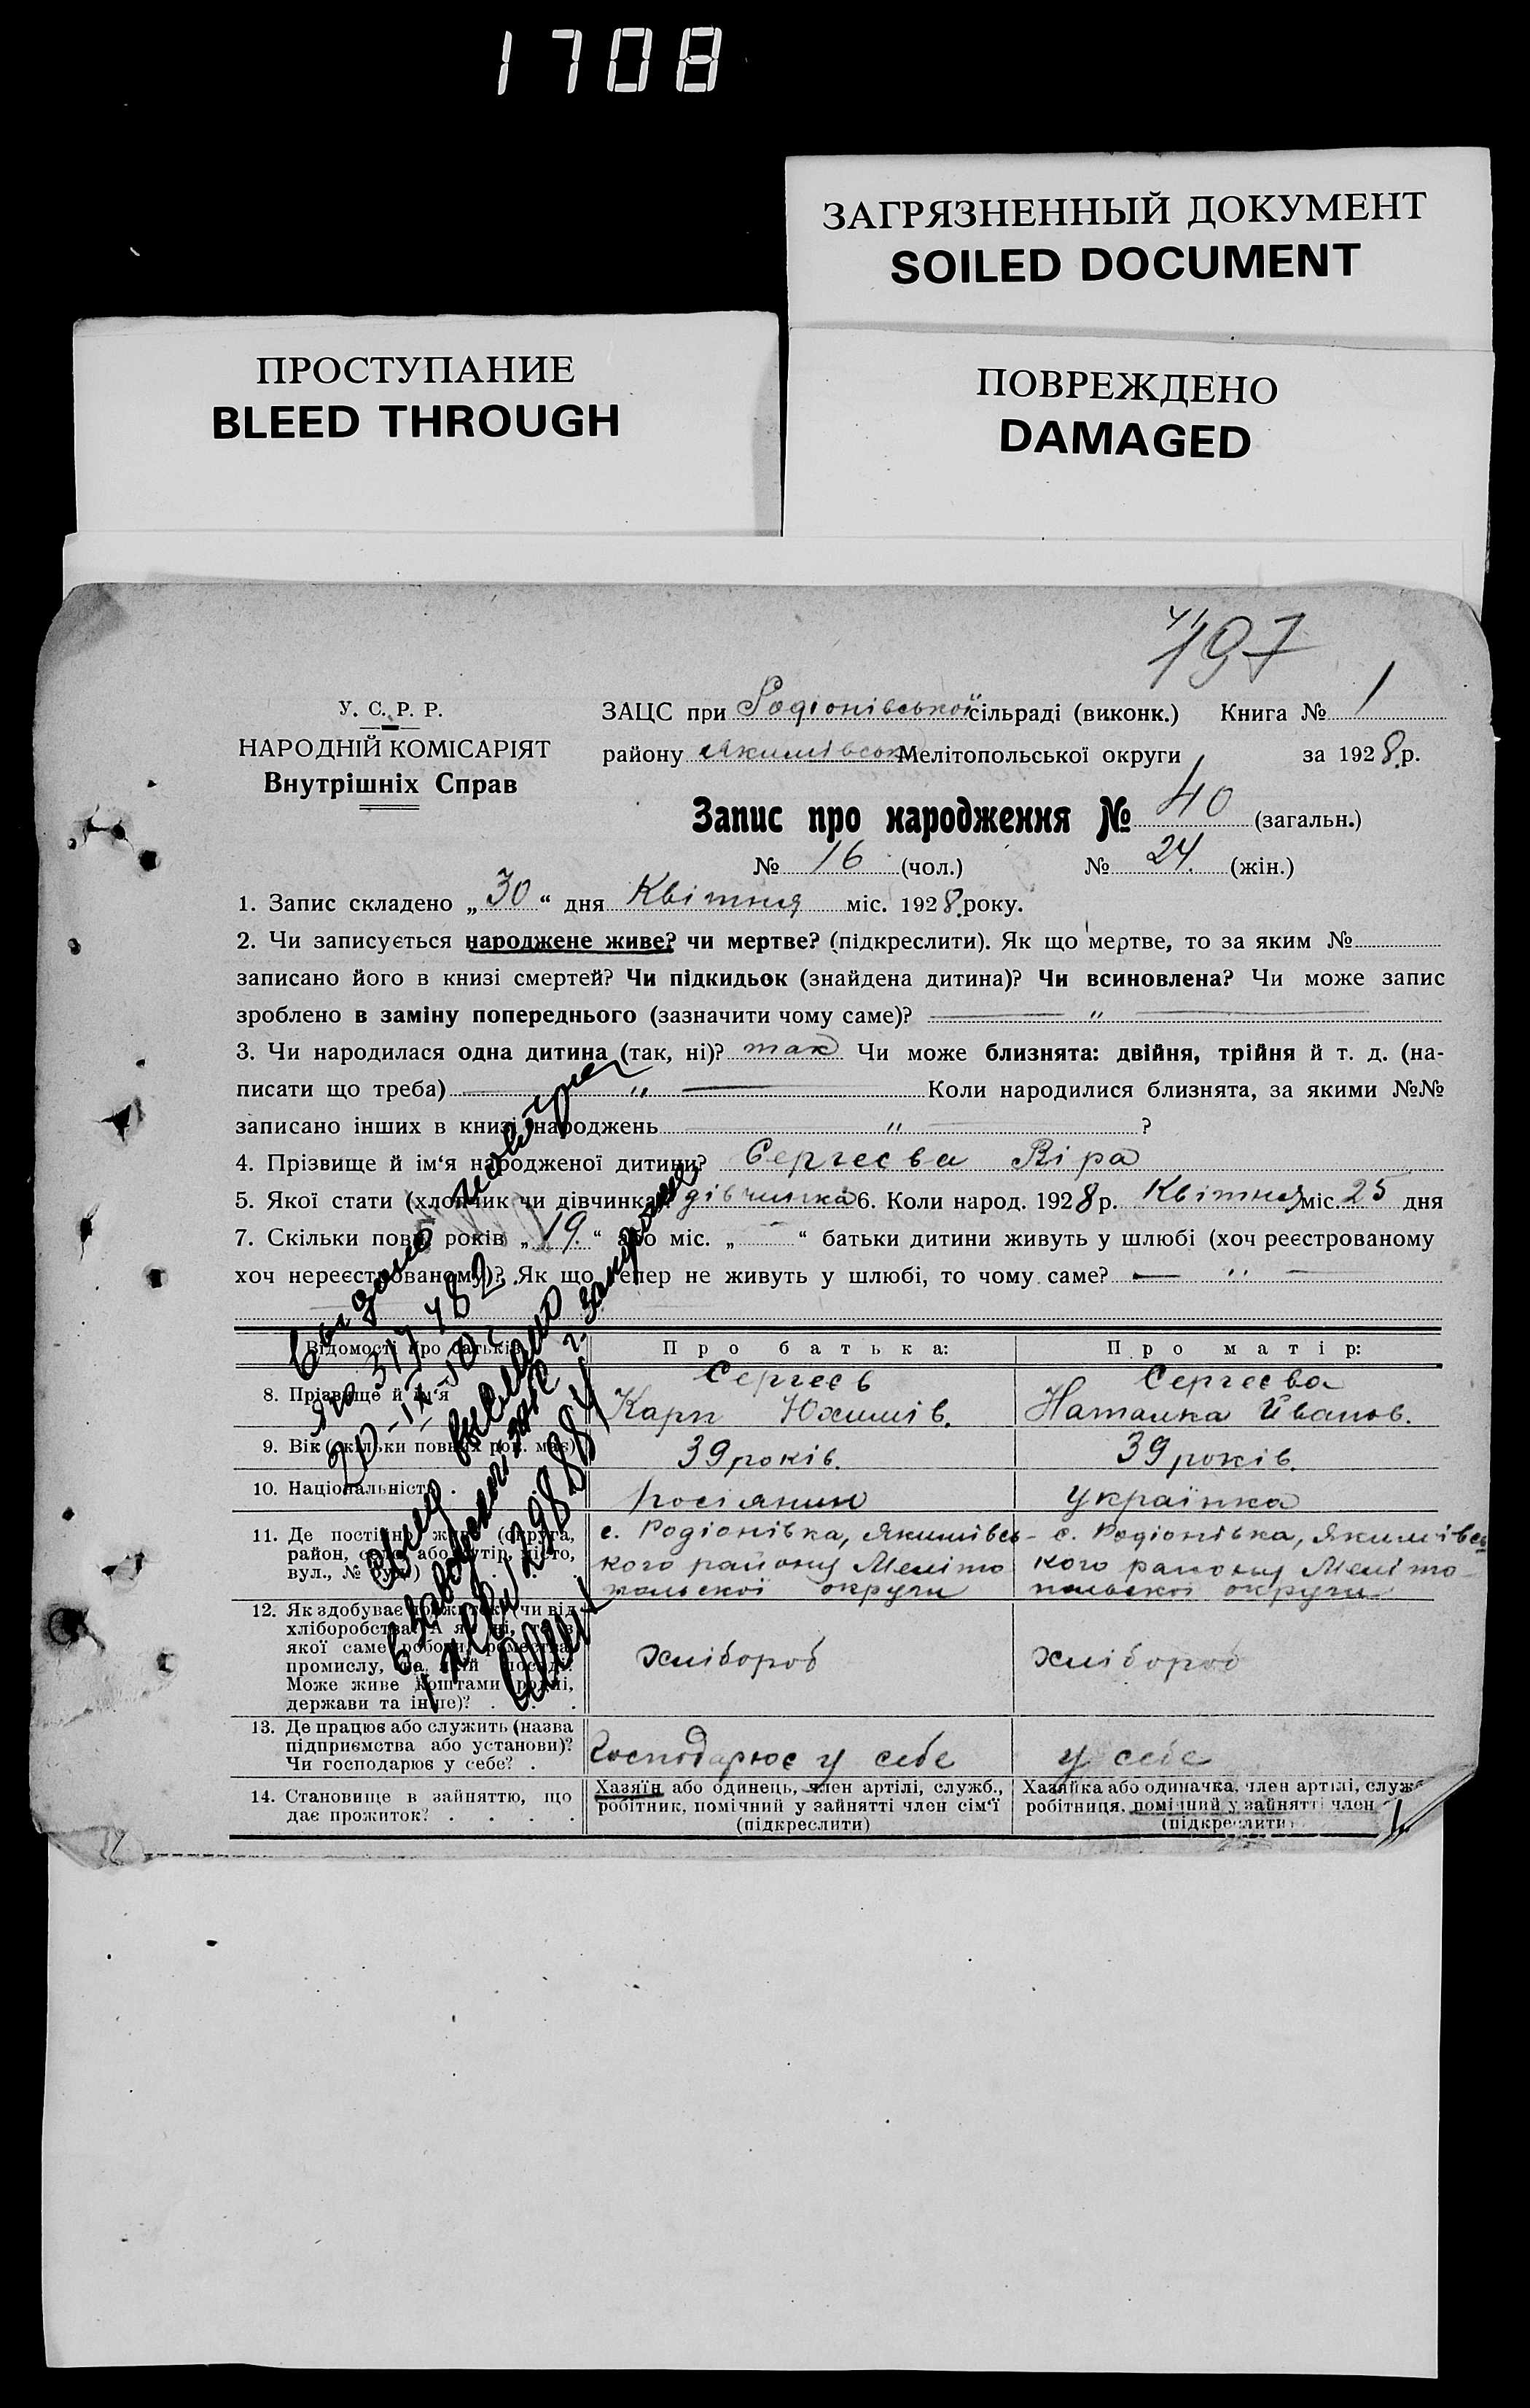 1708
ЗАГРЯЗНЕННЫЙ ДОКУМЕНТ
SOILED DOCUMENT
ПРОСТУПАНИЕ
BLEED THROUGH
ПОВРЕЖДЕНО
DAMAGED
197
У. С. Р. Р.
НАРОДНІЙ КОМІСАРІЯТ
Внутрішніх Справ
ЗАЦС при Родіонівської сільраді (виконк.) Книга № 1
району Якимівськ Мелітопольської округи за 1928 р.
Запис про народження № 40 (загальн.)
№ 16 (чол.) № 24. (жін.)
1. Запис складено „30“ дня Квітня міс. 1928 року.
2. Чи записується народжене живе? чи мертве? (підкреслити). Як що мертве, то за яким №
записано його в книзі смертей? Чи підкидьок (знайдена дитина)? Чи всиновлена? Чи може запис
зроблено в заміну попереднього (зазначити чому саме)? — „ —
3. Чи народилася одна дитина (так, ні)? так Чи може близнята: двійня, трійня й т. д. (на-
писати що треба) — „ — Коли народилися близнята, за якими №№
записано інших в книзі народжень — „ — ?
4. Прізвище й ім‘я народженої дитини? Сергеєва Віра
5. Якої стати (хлопчик чи дівчинка)? дівчинка 6. Коли народ. 1928 р. Квітня міс. 25 дня
7. Скільки повн. років „19.“ або міс. „—“ батьки дитини живуть у шлюбі (хоч реєстрованому
хоч нереєстрованому)? Як що тепер не живуть у шлюбі, то чому саме? — „ —
Відомості про батьків
Про батька:
Про матір:
8. Прізвище й ім‘я
Сергеєв
Карп Юхимів.
Сергеєва
Наталка Иванов.
9. Вік (скільки повних рок. має)
39 років.
39 років.
10. Національність .
росіянин
українка
11. Де постійно живе (округа,
район, село, або хутір, місто,
вул., № буд.)
с. Родіонівка, Якимівсь-
кого району Меліто
польскої округи
с. Родіонівка, Якимівсь
кого району Меліто-
польскої округи
12. Як здобуває прожиток (чи від
хліборобства? А як ні, то з
якої саме роботи, ремества,
промислу, на якій посаді?
Може живе коштами родні,
держави та інше)? .
хлібороб
хлібороб
13. Де працює або служить (назва
підприємства або установи)?
Чи господарює у себе? .
Господарює у себе
у себе
14. Становище в зайняттю, що
дає прожиток? . . . .
Хазяїн або одинець, член артілі, служб.,
робітник, помічний у зайнятті член сім‘ї
(підкреслити)
Хазяйка або одиначка, член артілі, служб
робітниця, помічний у зайнятті член
(підкреслити)